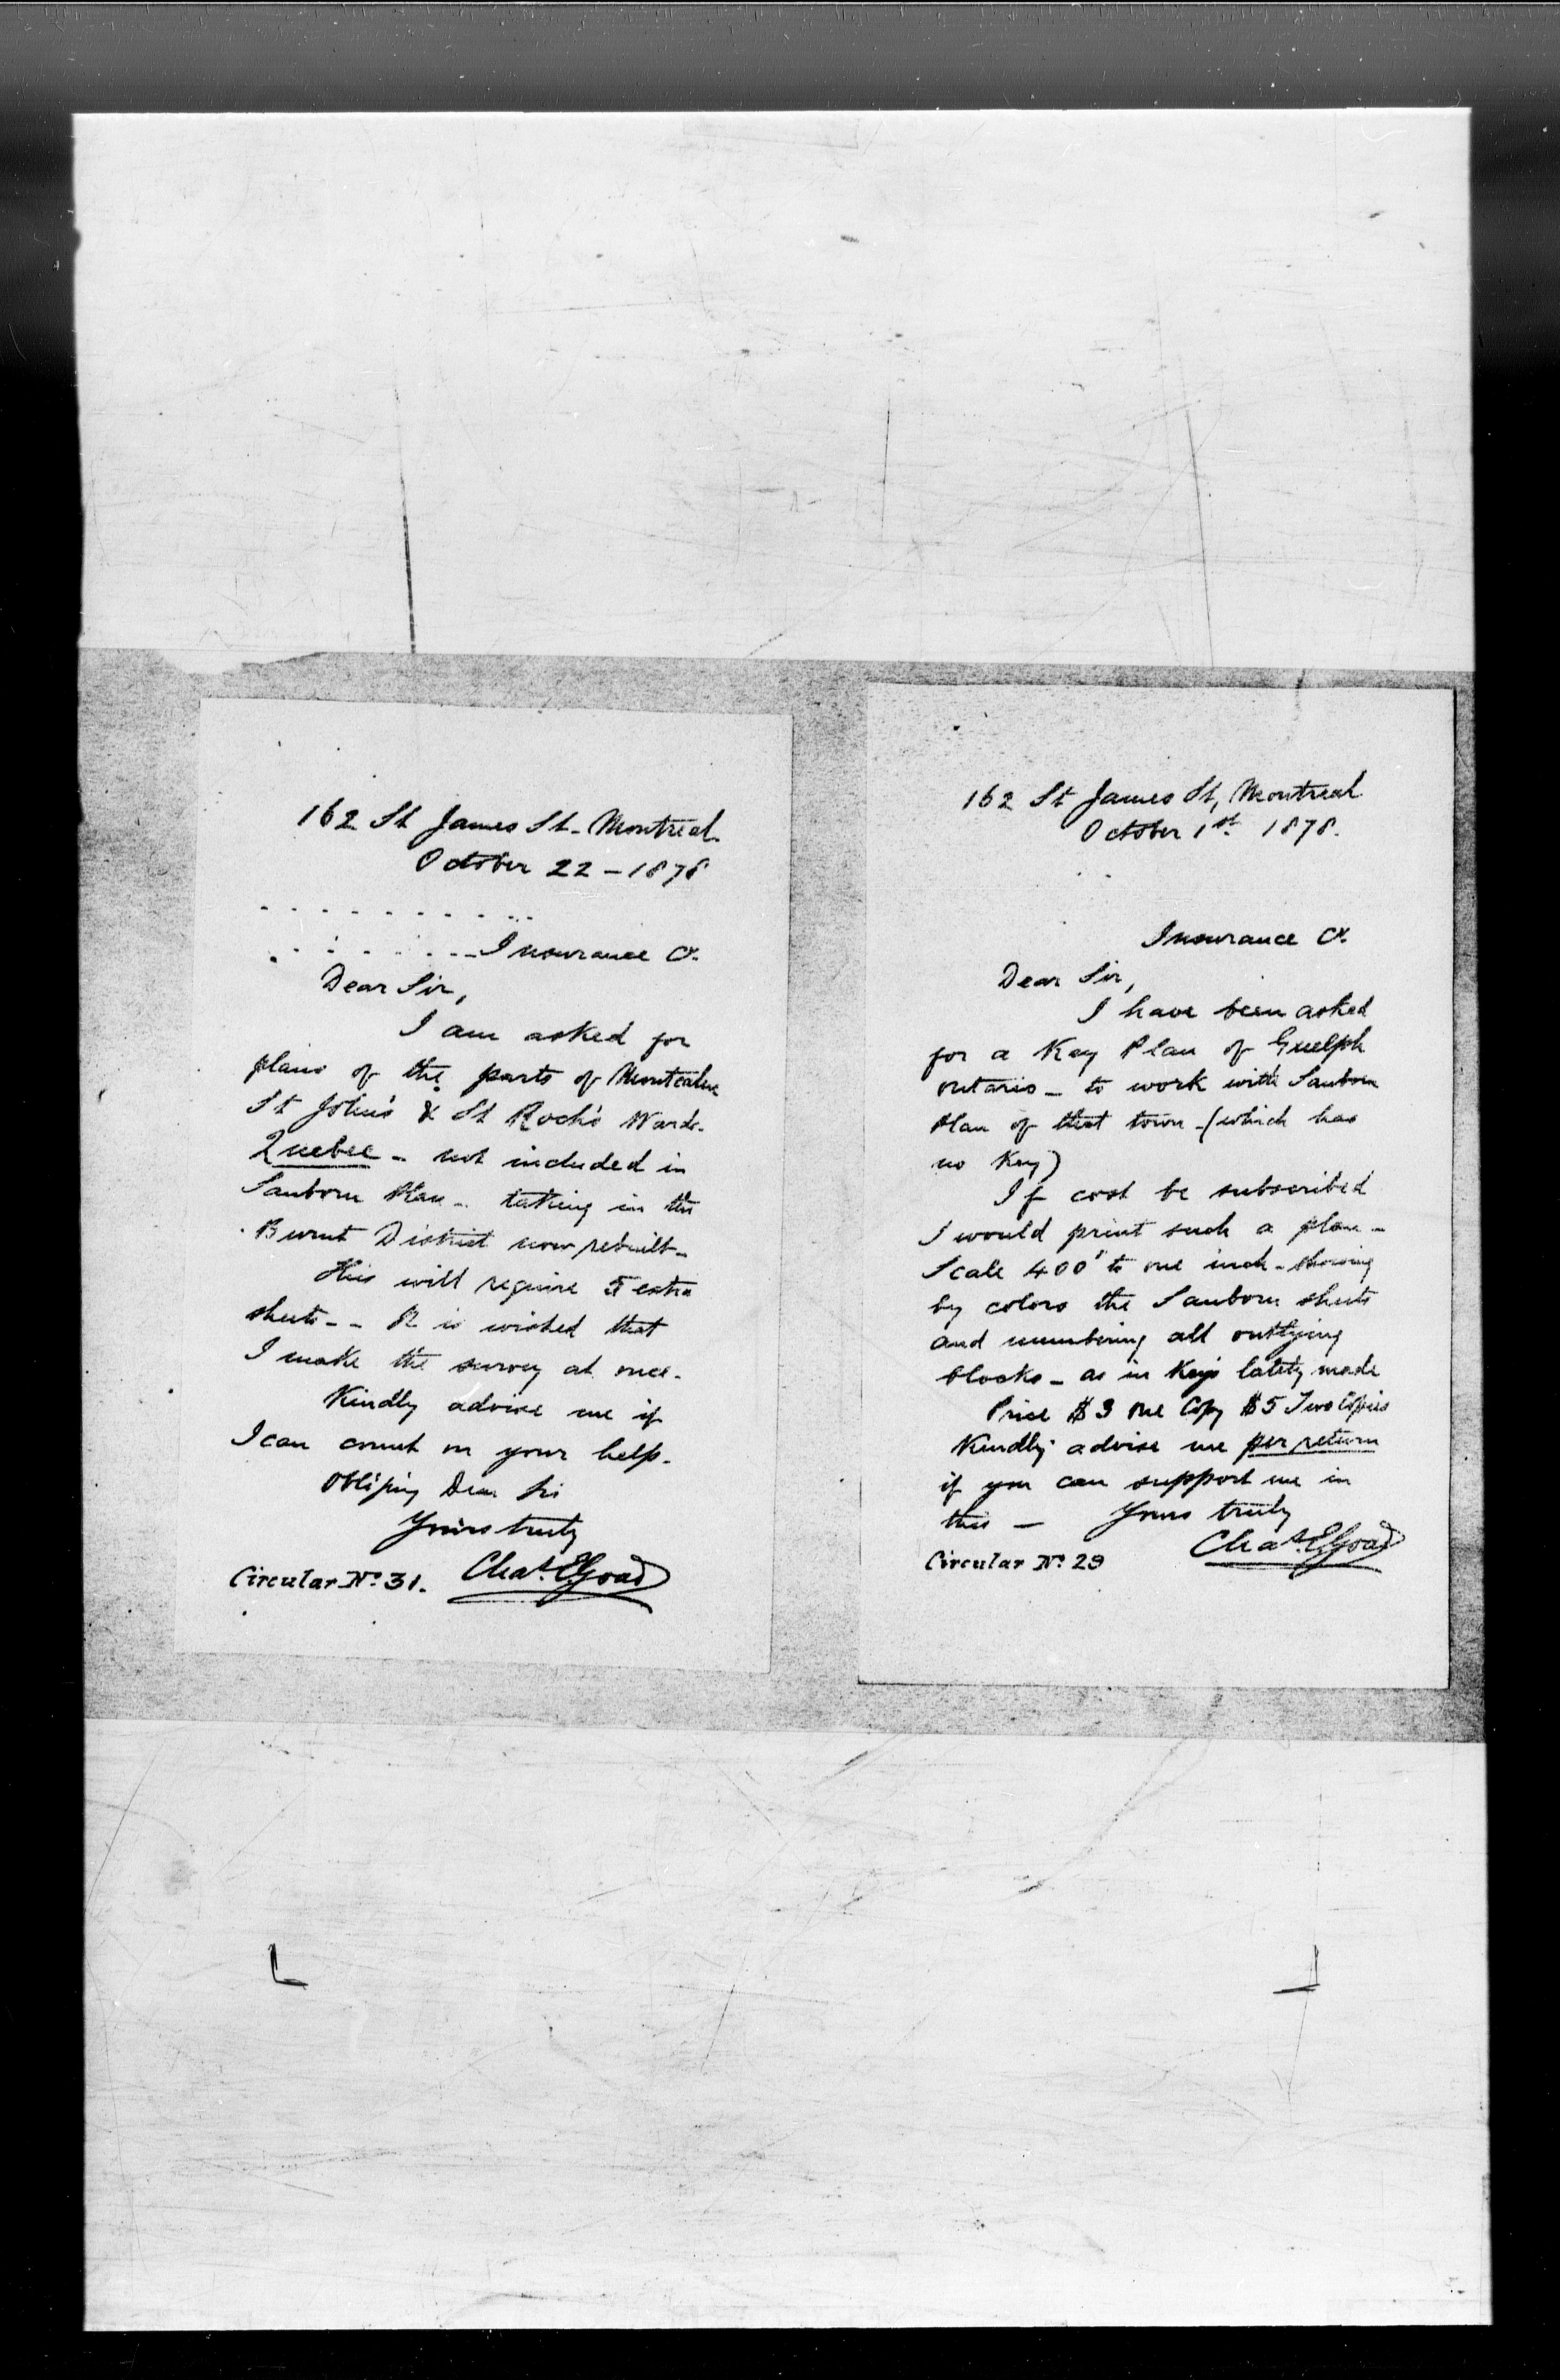 162 St James St - Montreal.
October 22 - 1878
Insurance Co.
Dear Sir,
I am asked for
plans of the parts of Montcalm
St John's & St Roch's Wards.
Quebec - not included in
Sanborn Plan - taking in the
Burnt District now rebuilt -
This will require 5 extra
sheets - - It is wished that
I make the survey at once.
Kindly advise me if
I can count on your help.
Obliging Dear Sir
Yours truly
Circular No. 31. Chas. E. Goad
162 St James St, Montreal
October 1st 1878.
Insurance Co.
Dear Sir,
I have been asked
for a Key Plan of Guelph
Ontario - to work with Sanborn
Plan of that town - (which has
no Key)
If cost be subscribed
I would print such a plan -
Scale 400' to one inch - showing
by colors the Sanborn sheets
and numbering all outlying
blocks - as in Keys lately made
Price $3 One Copy $5 Two Copies
Kindly advise me per return
if you can support me in
this - Yours truly
Circular No. 29 Chas. E. Goad